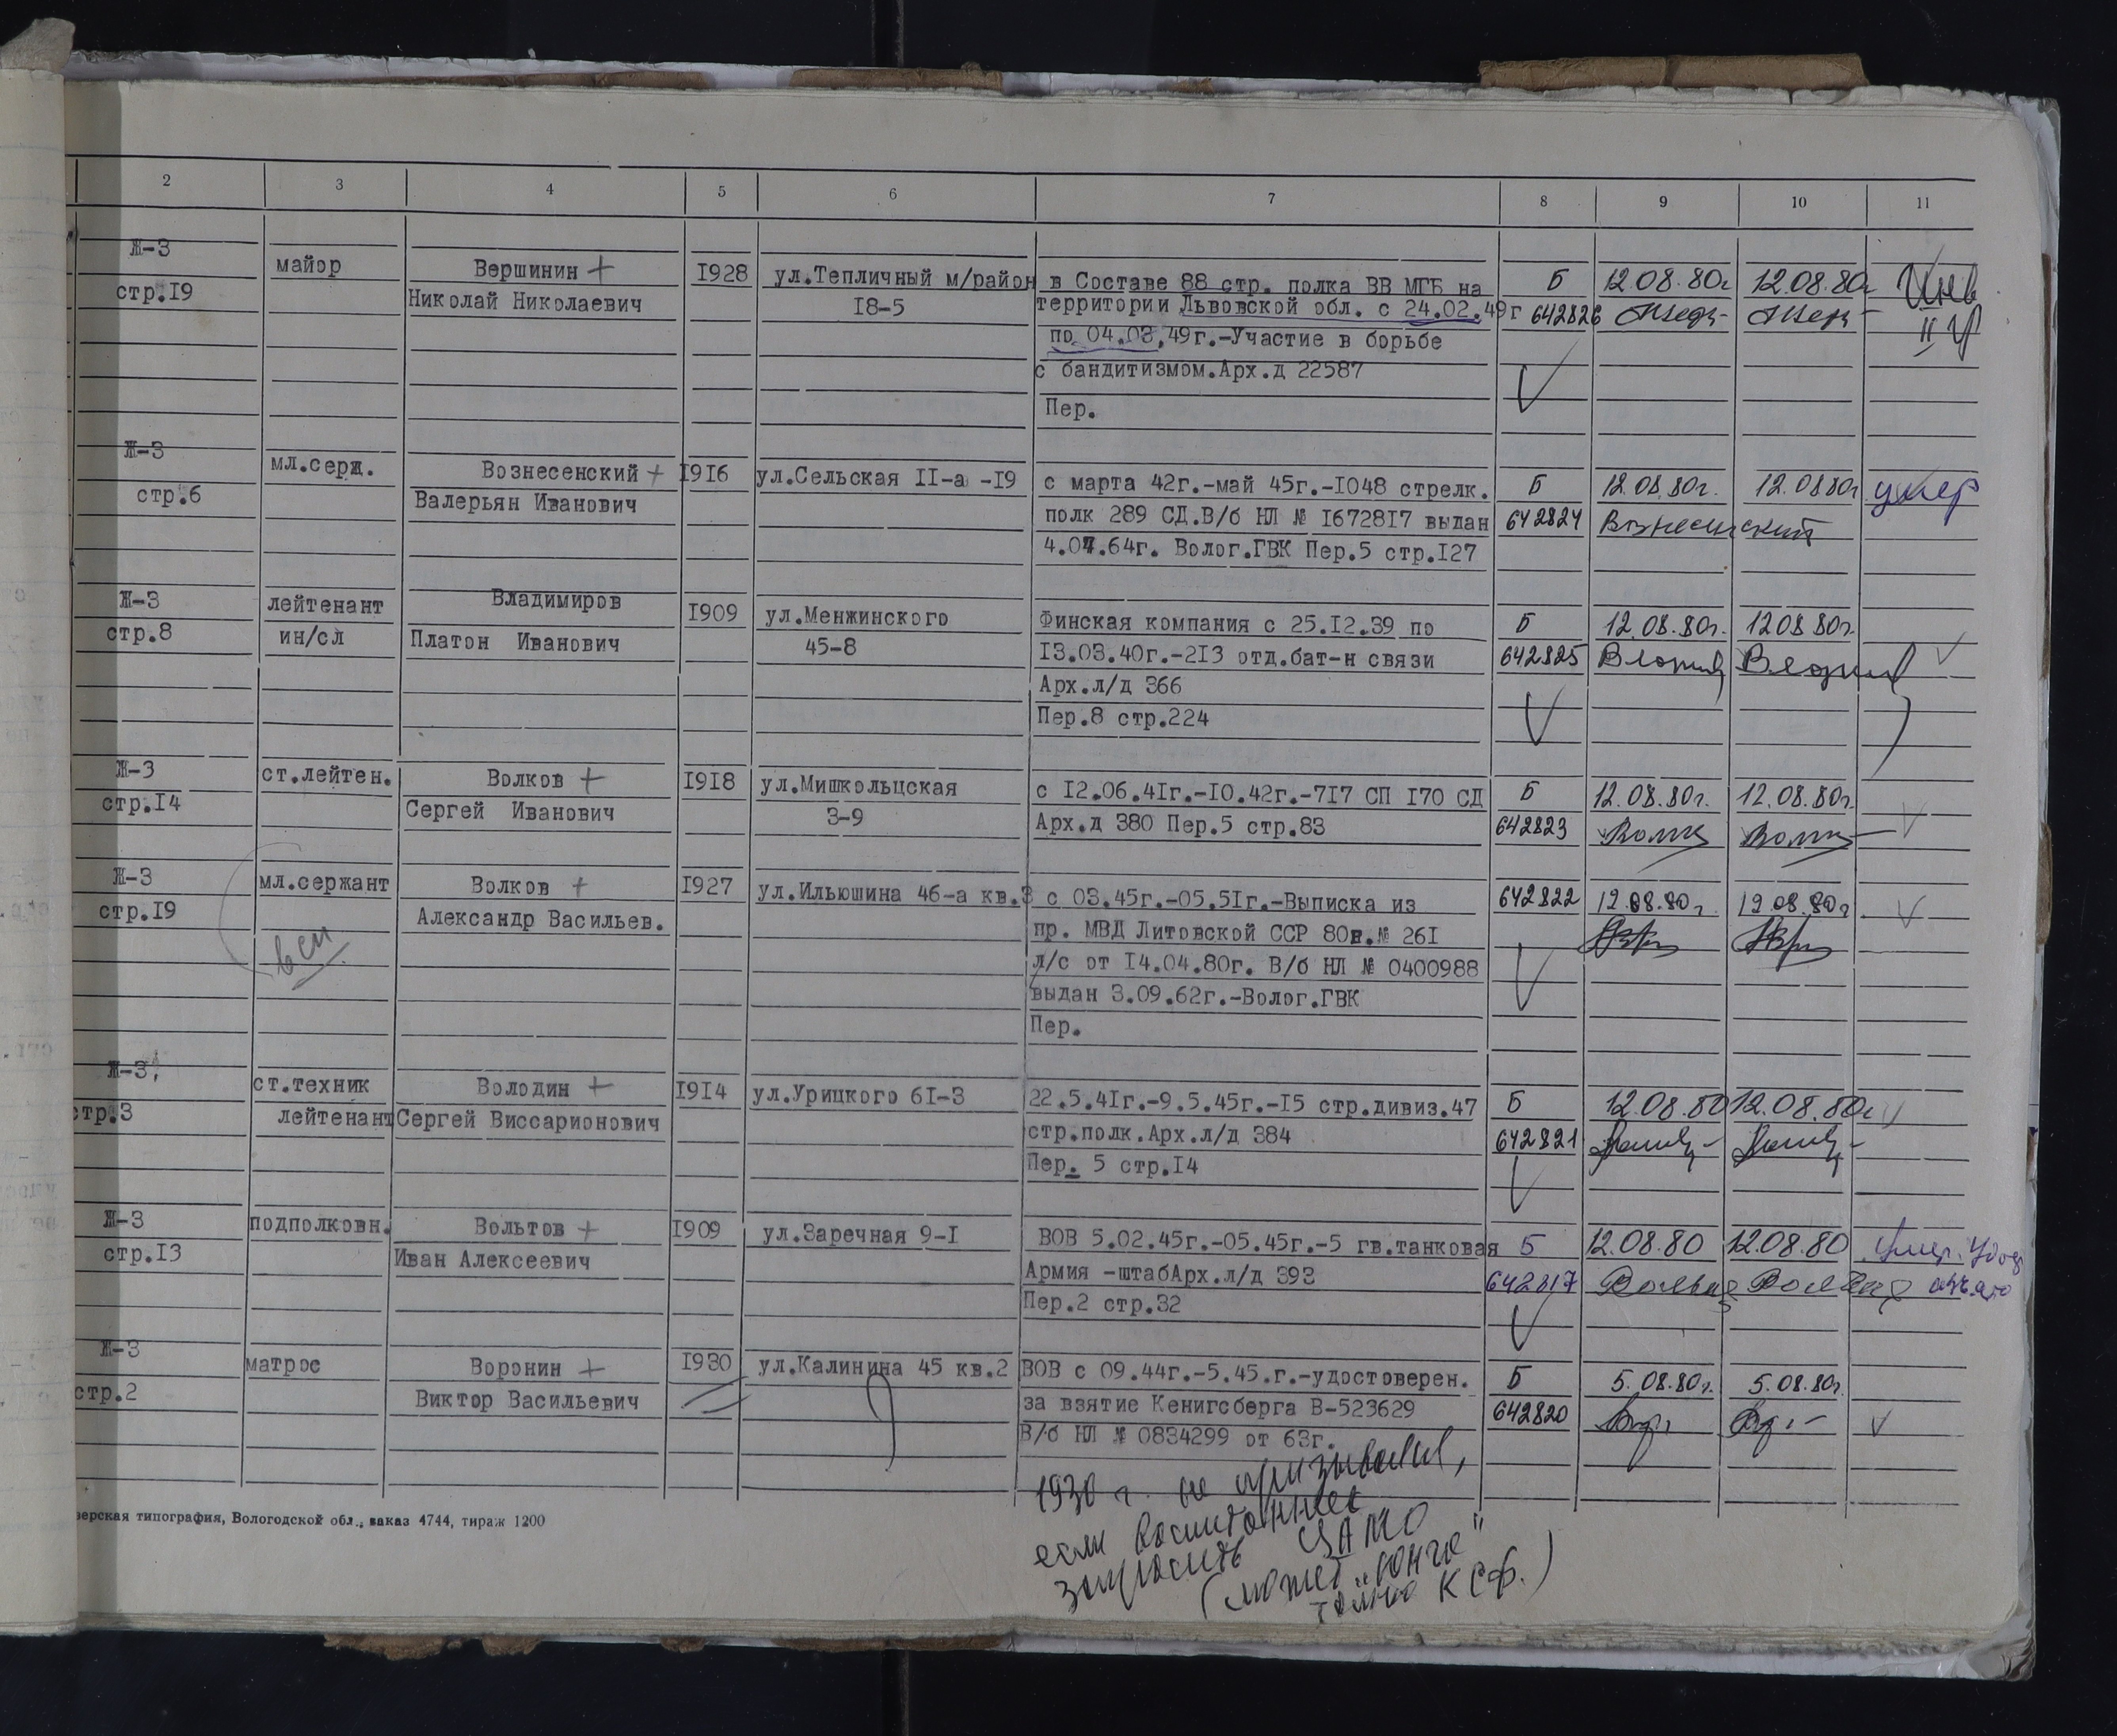 2 3 4 5 6 7 8 9 10 11
Ж-3 майор Вершинин + 1928 ул.Тепличный м/район в Составе 88 стр. полка ВВ МГБ на Б 12.08.80г 12.08.80г Инв
стр.19 Николай Николаевич 18-5 территории Львовской обл. с 24.02.49г 642826 II гр
по 04.03.49г.-Участие в борьбе
с бандитизмом.Арх.д 22587
Пер.
Ж-3 мл.серж. Вознесенский + 1916 ул.Сельская II-а -19 с марта 42г.-май 45г.-1048 стрелк. Б 12.08.80г. 12.08.80г умер
стр.6 Валерьян Иванович полк 289 СД.В/б НЛ № 1672817 выдан 642824 Вознесенский
4.07.64г. Волог.ГВК Пер.5 стр.127
Ж-3 лейтенант Владимиров 1909 ул.Менжинского Финская компания с 25.12.39 по Б 12.08.80г. 12.08.80г.
стр.8 ин/сл Платон Иванович 45-8 13.03.40г.-213 отд.бат-н связи 642825
Арх.л/д 366
Пер.8 стр.224
Ж-3 ст.лейтен. Волков + 1918 ул.Мишкольцская с 12.06.41г.-10.42г.-717 СП 170 СД Б 12.08.80г. 12.08.80г.
стр.14 Сергей Иванович 3-9 Арх.д 380 Пер.5 стр.83 642823
Ж-3 мл.сержант Волков + 1927 ул.Ильюшина 46-а кв.3 с 03.45г.-05.51г.-Выписка из 642822 12.08.80г. 12.08.80г
стр.19 Александр Васильев. пр. МВД Литовской ССР 80в.№ 261
л/с от 14.04.80г. В/б НЛ № 0400988
выдан 3.09.62г.-Волог.ГВК
Пер.
Ж-3, ст.техник Володин + 1914 ул.Урицкого 61-3 22.5.41г.-9.5.45г.-15 стр.дивиз.47 Б 12.08.80 12.08.80г
стр.3 лейтенант Сергей Виссарионович стр.полк.Арх.л/д 384 642821
Пер. 5 стр.14
Ж-3 подполковн. Вольтов + 1909 ул.Заречная 9-1 ВОВ 5.02.45г.-05.45г.-5 гв.танковая Б 12.08.80 12.08.80
стр.13 Иван Алексеевич Армия -штабАрх.л/д 393 642817
Пер.2 стр.32
Ж-3 матрос Воронин + 1930 ул.Калинина 45 кв.2 ВОВ с 09.44г.-5.45.г.-удостоверен. Б 5.08.80г. 5.08.80г.
стр.2 Виктор Васильевич за взятие Кенигсберга В-523629 642820
В/б НЛ № 0834299 от 63г.
1930 г. не призывался,
если воспитанник
запросить ЦАМО
(может "юнга"
КСФ.)
верская типография, Вологодской обл., заказ 4744, тираж 1200